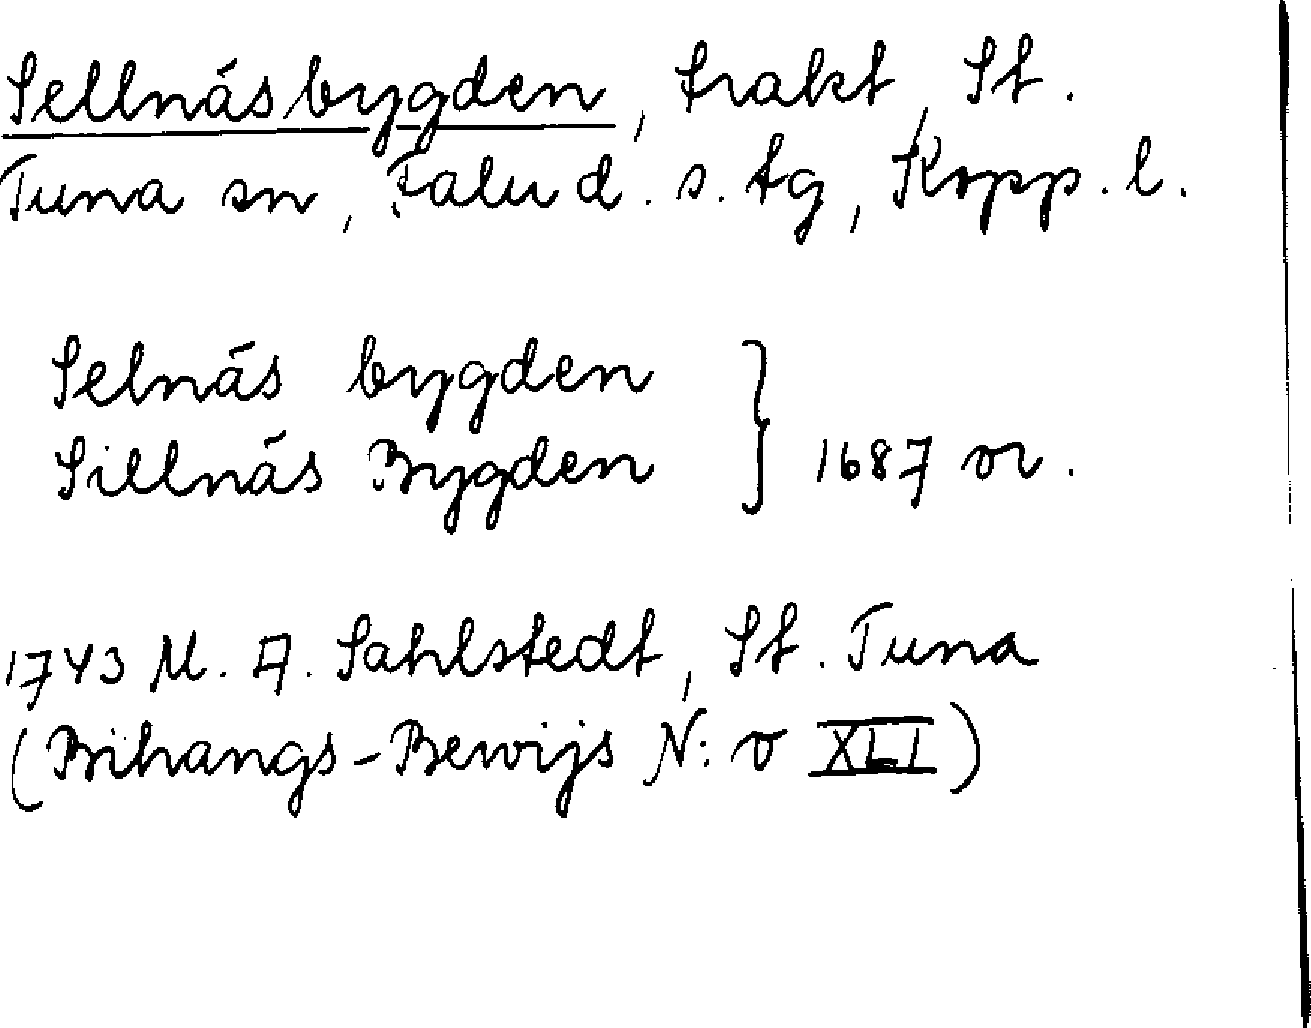 Sellnäsbygden, trakt, St.
Tuna sn, Falu d. s. tg, Kopp. l.
Selnäs bygden
Sillnäs Bygden } 1687 or.
1743 M. A. Sahlstedt, St. Tuna
(Bihangs-Bewijs N:o XLI)